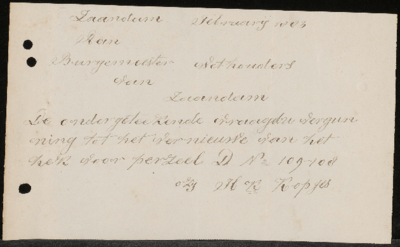 Zaandam February 1903
Aan
Burgemeester Wethouders
van
Zaandam
De ondergeteekende vraagdn vergun
ning tot het vernieuwe van het
hek voor perzeel D No 109 108
H K